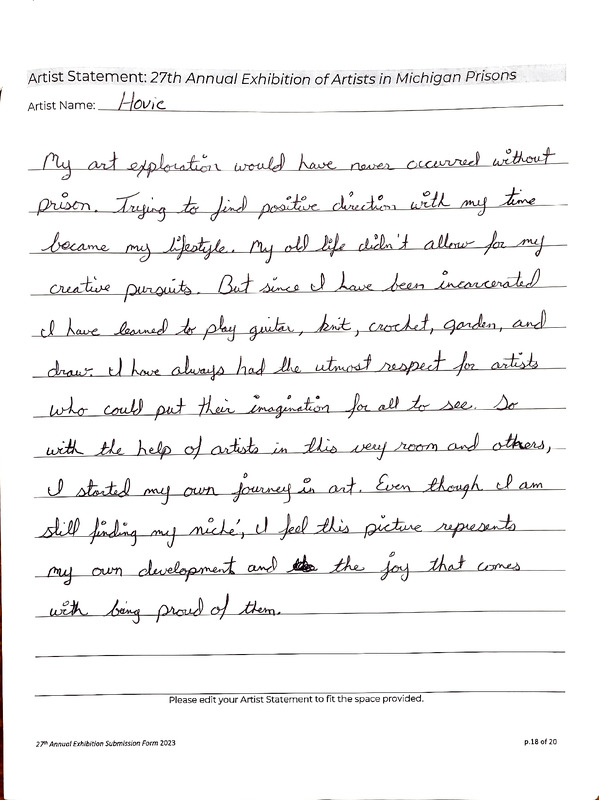 Artist Statement: 27th Annual Exhibition of Artists in Michigan Prisons
Artist Name: Hovie
My art exploration would have never occurred without
prison. Trying to find positive direction with my time
became my lifestyle. My old life didn't allow for my
creative pursuits. But since I have been incarcerated
I have learned to play guitar, knit, crochet, garden, and
draw. I have always had the utmost respect for artists
who could put their imagination for all to see. So
with the help of artists in this very room and others,
I started my own journey in art. Even though I am
still finding my niché, I feel this picture represents
my own development and the joy that comes
with being proud of them.
Please edit your Artist Statement to fit the space provided.
27th Annual Exhibition Submission Form 2023
p.18 of 20